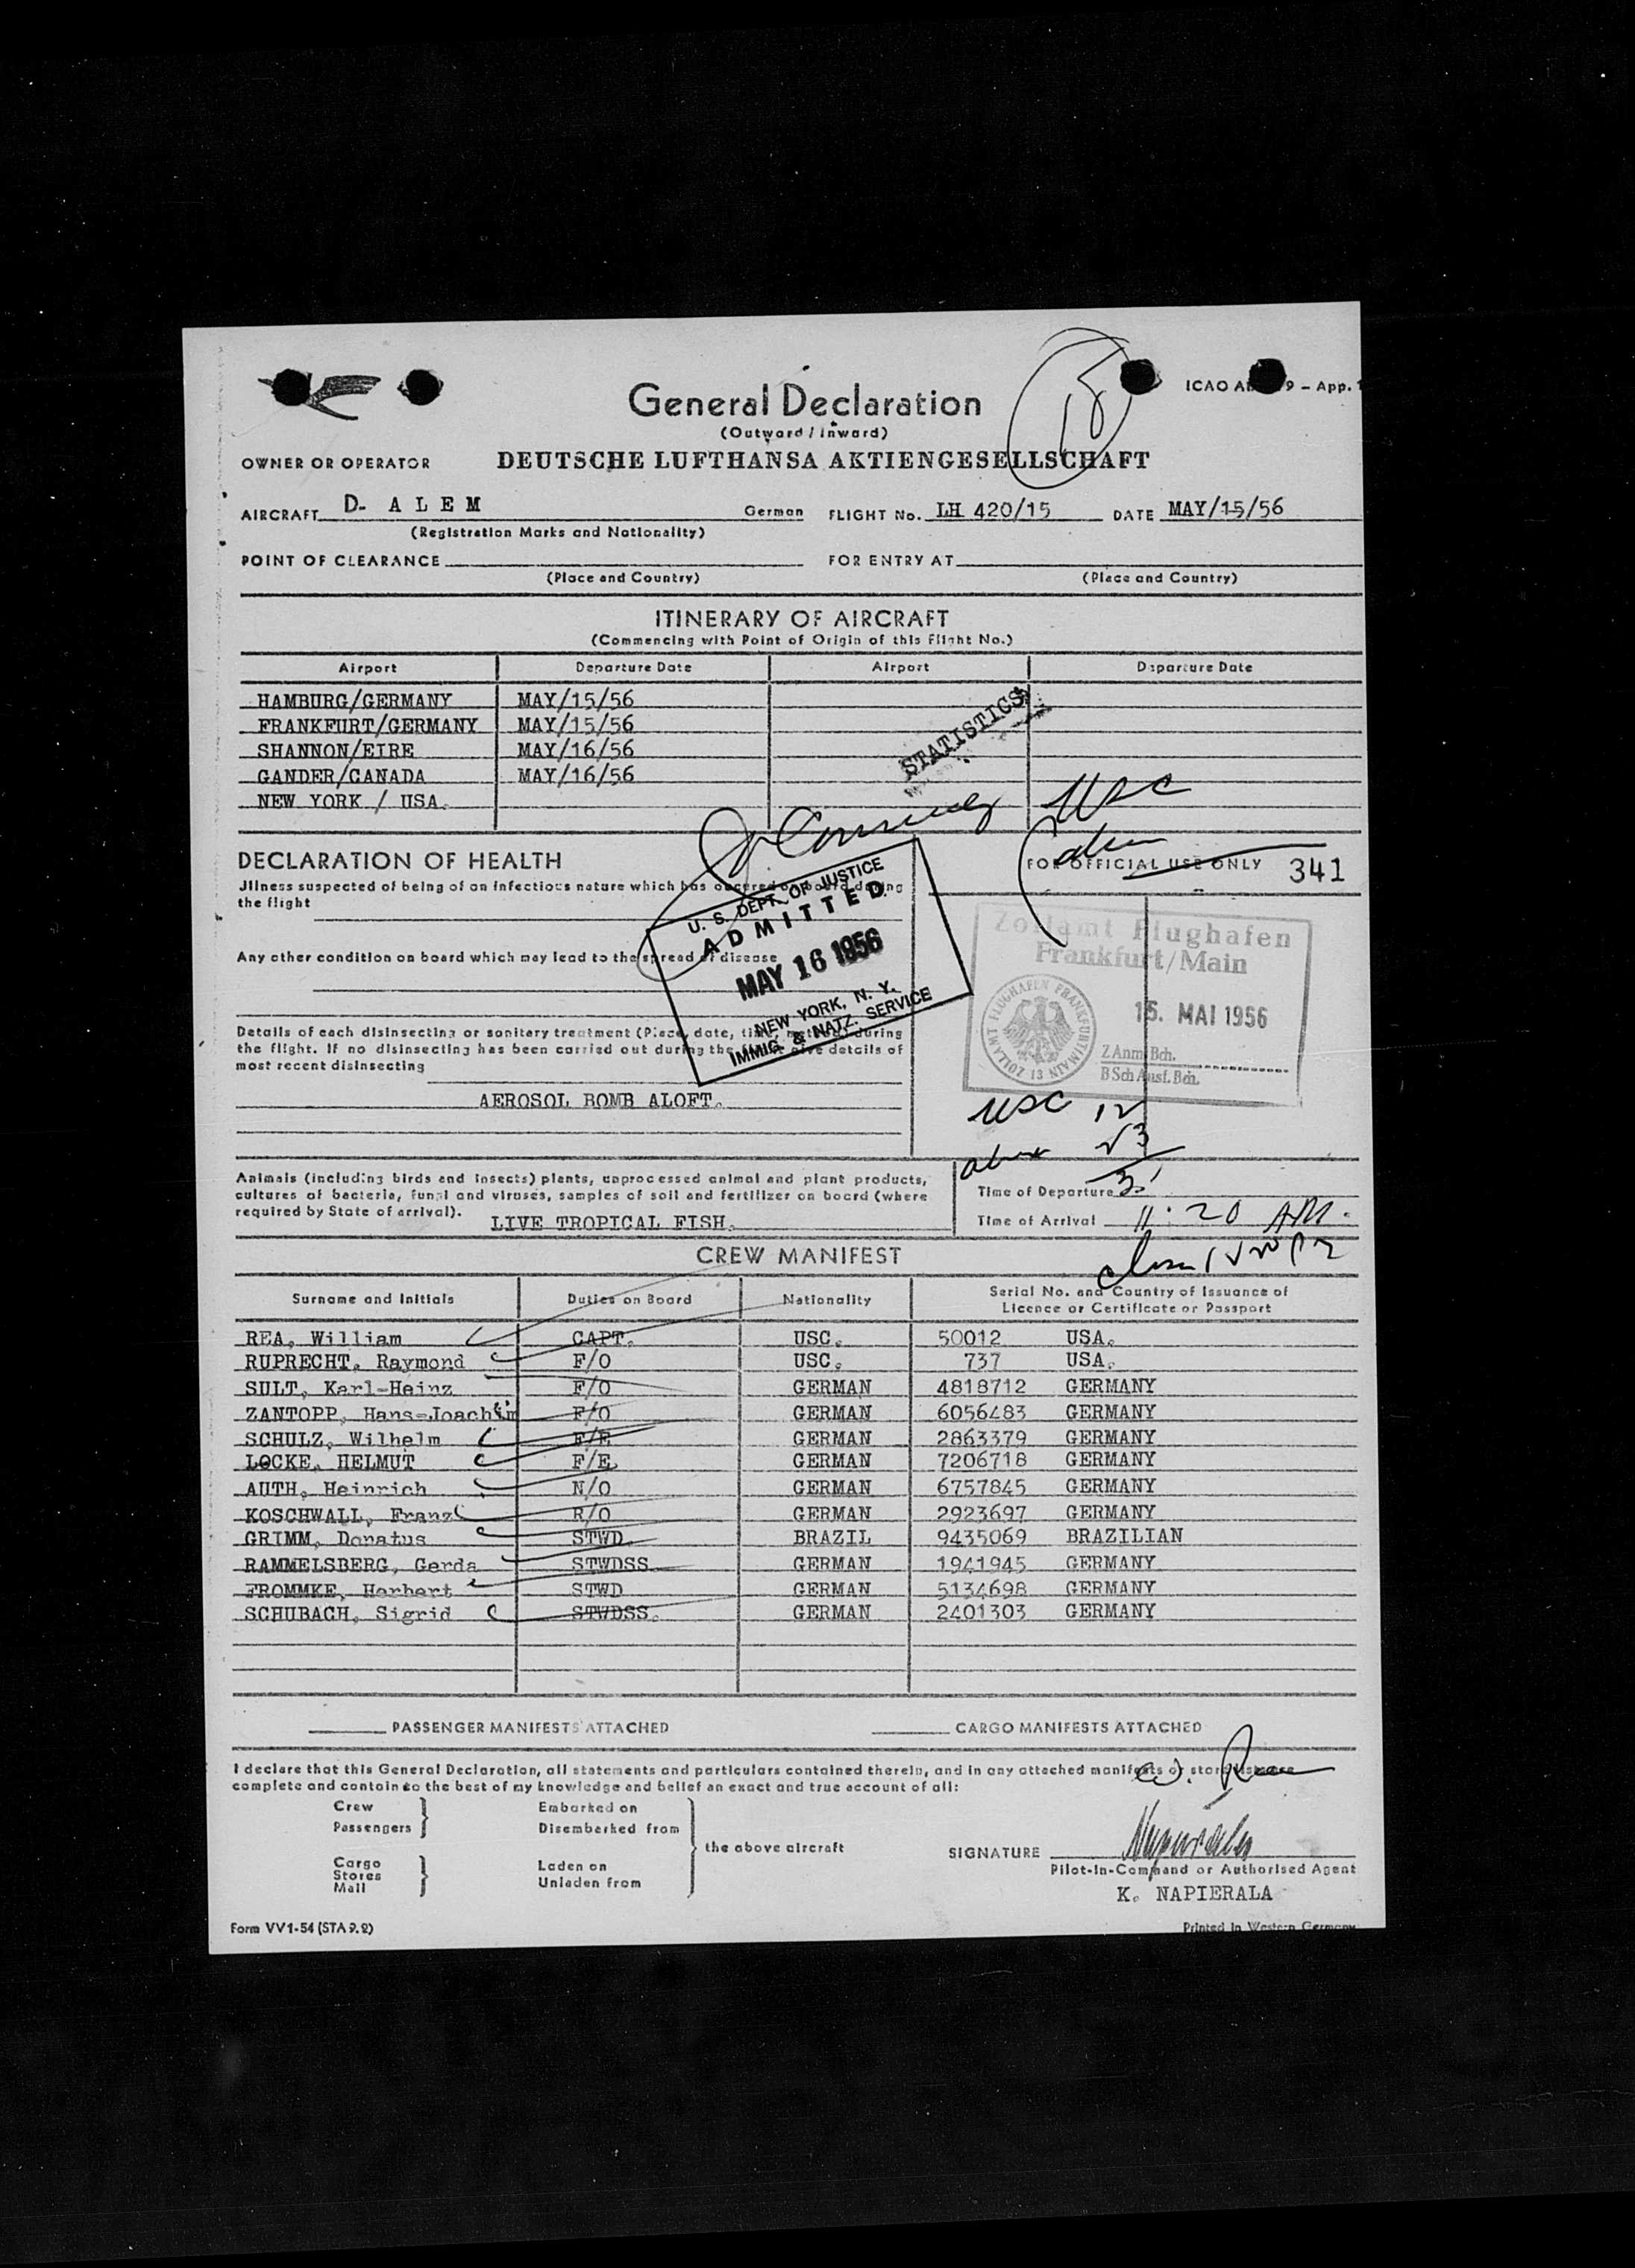 General Declaration
ICAO
9 – App. 1
(Outward / Inward)
OWNER OR OPERATOR DEUTSCHE LUFTHANSA AKTIENGESELLSCHAFT
AIRCRAFT D- A L E M German FLIGHT No. LH 420/15 DATE MAY/15/56
(Registration Marks and Nationality)
POINT OF CLEARANCE FOR ENTRY AT
(Place and Country) (Place and Country)
ITINERARY OF AIRCRAFT
(Commencing with Point of Origin of this Flight No.)
Airport Departure Date Airport Departure Date
HAMBURG/GERMANY MAY/15/56
FRANKFURT/GERMANY MAY/15/56
SHANNON/EIRE MAY/16/56
GANDER/CANADA MAY/16/56
NEW YORK / USA.
STATISTICS
USC
DECLARATION OF HEALTH
FOR OFFICIAL USE ONLY 341
Jllness suspected of being of an infectious nature which has occured on board during
the flight
Any other condition on board which may lead to the spread of disease
U. S. DEPT. OF JUSTICE
ADMITTED
MAY 16 1956
NEW YORK, N. Y.
IMMIG. & NATZ. SERVICE
Zollamt Flughafen
Frankfurt/Main
15. MAI 1956
ZOLLAMT FLUGHAFEN FRANKFURT/MAIN
13
Z Anm. Bch.
B Sch Ausf. Bch.
Details of each disinsecting or sanitary treatment (Place, date, time, method) during
the flight. If no disinsecting has been carried out during the flight give details of
most recent disinsecting
AEROSOL BOMB ALOFT.
USC 12
Animals (including birds and insects) plants, unprocessed animal and plant products,
cultures of bacteria, fungi and viruses, samples of soil and fertilizer on board (where
required by State of arrival).
LIVE TROPICAL FISH.
Time of Departure
Time of Arrival 11:20 AM.
CREW MANIFEST
Surname and Initials Duties on Board Nationality Serial No. and Country of Issuance of
Licence or Certificate or Passport
REA, William CAPT. USC. 50012 USA.
RUPRECHT, Raymond F/O USC. 737 USA.
SULT, Karl-Heinz F/O GERMAN 4818712 GERMANY
ZANTOPP, Hans-Joachim F/O GERMAN 6056483 GERMANY
SCHULZ, Wilhelm F/E GERMAN 2863379 GERMANY
LOCKE, HELMUT F/E. GERMAN 7206718 GERMANY
AUTH, Heinrich N/O GERMAN 6757845 GERMANY
KOSCHWALL, Franz R/O GERMAN 2923697 GERMANY
GRIMM, Donatus STWD. BRAZIL 9435069 BRAZILIAN
RAMMELSBERG, Gerda STWDSS. GERMAN 1941945 GERMANY
FROMMKE, Herbert STWD GERMAN 5134698 GERMANY
SCHUBACH, Sigrid STWDSS. GERMAN 2401303 GERMANY
PASSENGER MANIFESTS ATTACHED CARGO MANIFESTS ATTACHED
I declare that this General Declaration, all statements and particulars contained therein, and in any attached manifests or stores
complete and contain to the best of my knowledge and belief an exact and true account of all:
W. Rea
Crew Embarked on
Passengers Disembarked from
the above aircraft
Cargo Laden on
Stores
Mail Unladen from
SIGNATURE Napierala
Pilot-in-Command or Authorised Agent
K. NAPIERALA
Form VV1-54 (STA 9.2) Printed in Western Germany